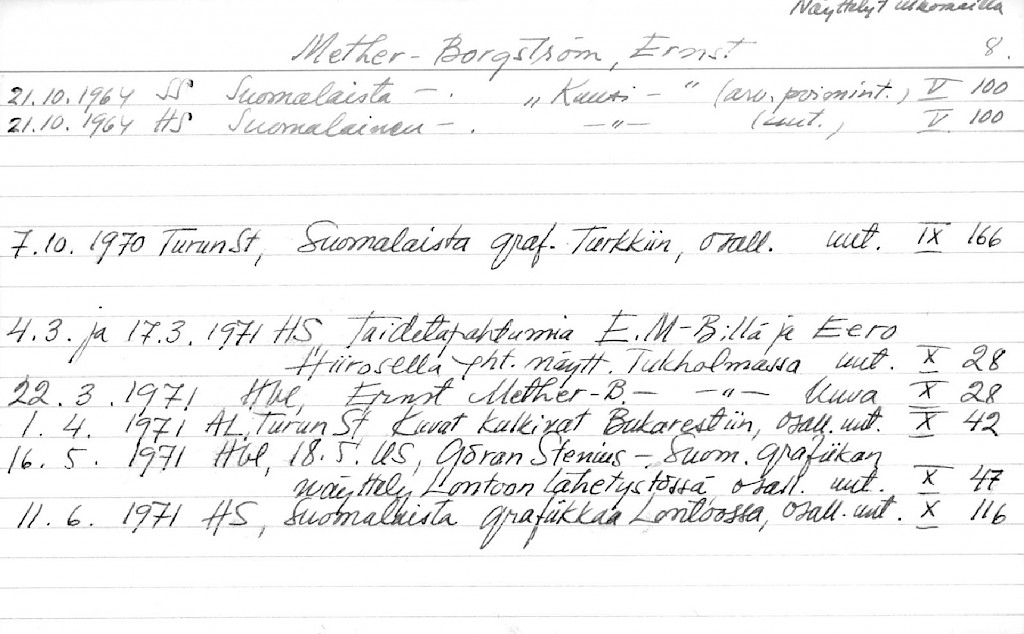 Näyttelyt ulkomailla
Mether-Borgström, Ernst 8.
21.10.1964 SS Suomalaista -. „Kuusi-“ (arv. poimint.) V 100
21.10.1964 HS Suomalainen -. -"- (uut.) V 100
7.10.1970 Turun St, Suomalaista graf. Turkkiin, osall. uut. IX 166
4.3. ja 17.3.1971 HS, Taidetapahtumia E.M-B:llä ja Eero
Hiirosella yht. näytt. Tukholmassa uut. X 28
22.3.1971 Hbl, Ernst Mether-B. - -"- Kuva X 28
1.4.1971 AL, Turun St, Kuvat kulkivat Bukarestiin, osall. uut. X 42
16.5.1971 Hbl, 18.5. US, Göran Stenius - Suom. grafiikan
näyttely Lontoon lähetystössä, osall. uut. X 47
11.6.1971 HS, Suomalaista grafiikkaa Lontoossa, osall. uut. X 116